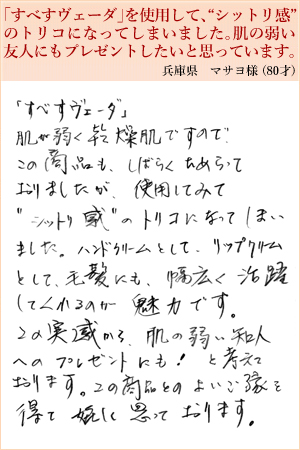 「すべすヴェーダ」を使用して、“シットリ感”
のトリコになってしまいました。肌の弱い
友人にもプレゼントしたいと思っています。
兵庫県　マサヨ様（80才）
「すべすヴェーダ」
肌が弱く乾燥肌ですので
この商品も、しばらくためらって
おりましたが、使用してみて
"シットリ感"のトリコになってしまい
ました。ハンドクリームとして、リップクリーム
として、毛髪にも、幅広く活躍
してくれるのが魅力です。
この実感から、肌の弱い知人
へのプレゼントにも！と考えて
おります。この商品とのよいご縁を
得て嬉しく思っております。